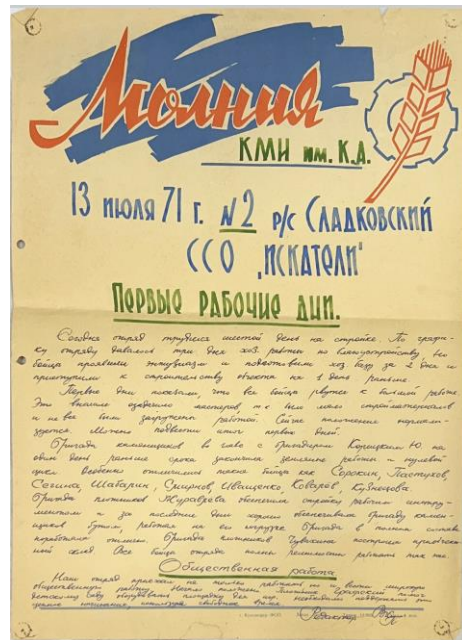 Молния
КМИ им. К.А.
13 июля 71 г. №2 р/с Сладковский
ССО „Искатели"
Первые рабочие дни.
Сегодня отряд трудится шестой день на стройке. По графи-
ку отряду давалось три дня хоз работ по благоустройству. Но
бойцы проявили энтузиазм и подготовили хоз. базу за 2 дня и
приступили к строительству объекта на 1 день раньше.
Первые дни показали, что все бойцы рвутся к большой работе.
Это вначале мастеров, т.к. был мало стройматериалов
и не все были загружены работой. Сейчас положение
Можно подвести итоги первых дней.
Бригада каменщиков во главе с бригадиром Ю. на
один день раньше срока закончила земляные работы и нулевой
цикл. Особенно отличились такие бойцы как Сорокин, Пастухов,
Сегина, Шабарин, Смирнов, Иващенко, Коваров, Кузнецова.
Бригада плотников Журавлева обеспечила стройку рабочим инстру-
ментом и за последние дни хорошо обеспечивала бригаду камен-
щиков бутом, работая на его погрузке. Бригада в полном составе
поработала отлично. Бригада плотников построила
склад. Все бойцы отряда полны решимости работать так же.
Общественная работа
Наш отряд приехал не только работать но и вести широкую
общественную работу.
детскому саду оборудовать площадку для игр.
Редактор